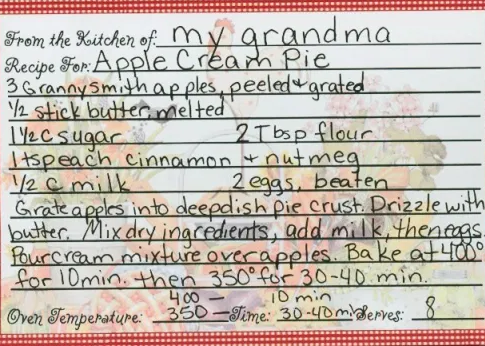 From the Kitchen of: my grandma
Recipe For: Apple Cream Pie
3 Grannysmith apples, peeled + grated
1/2 stick butter, melted
1 1/2 C sugar 2 Tbsp flour
1 tsp each cinnamon + nutmeg
1/2 c milk 2 eggs, beaten
Grate apples into deepdish pie crust. Drizzle with
butter. Mix dry ingredients, add milk, then eggs.
Pour cream mixture over apples. Bake at 400°
for 10 min. then 350° for 30-40 min.
400 — 10 min
Oven Temperature: 350 — Time: 30-40 min Serves: 8